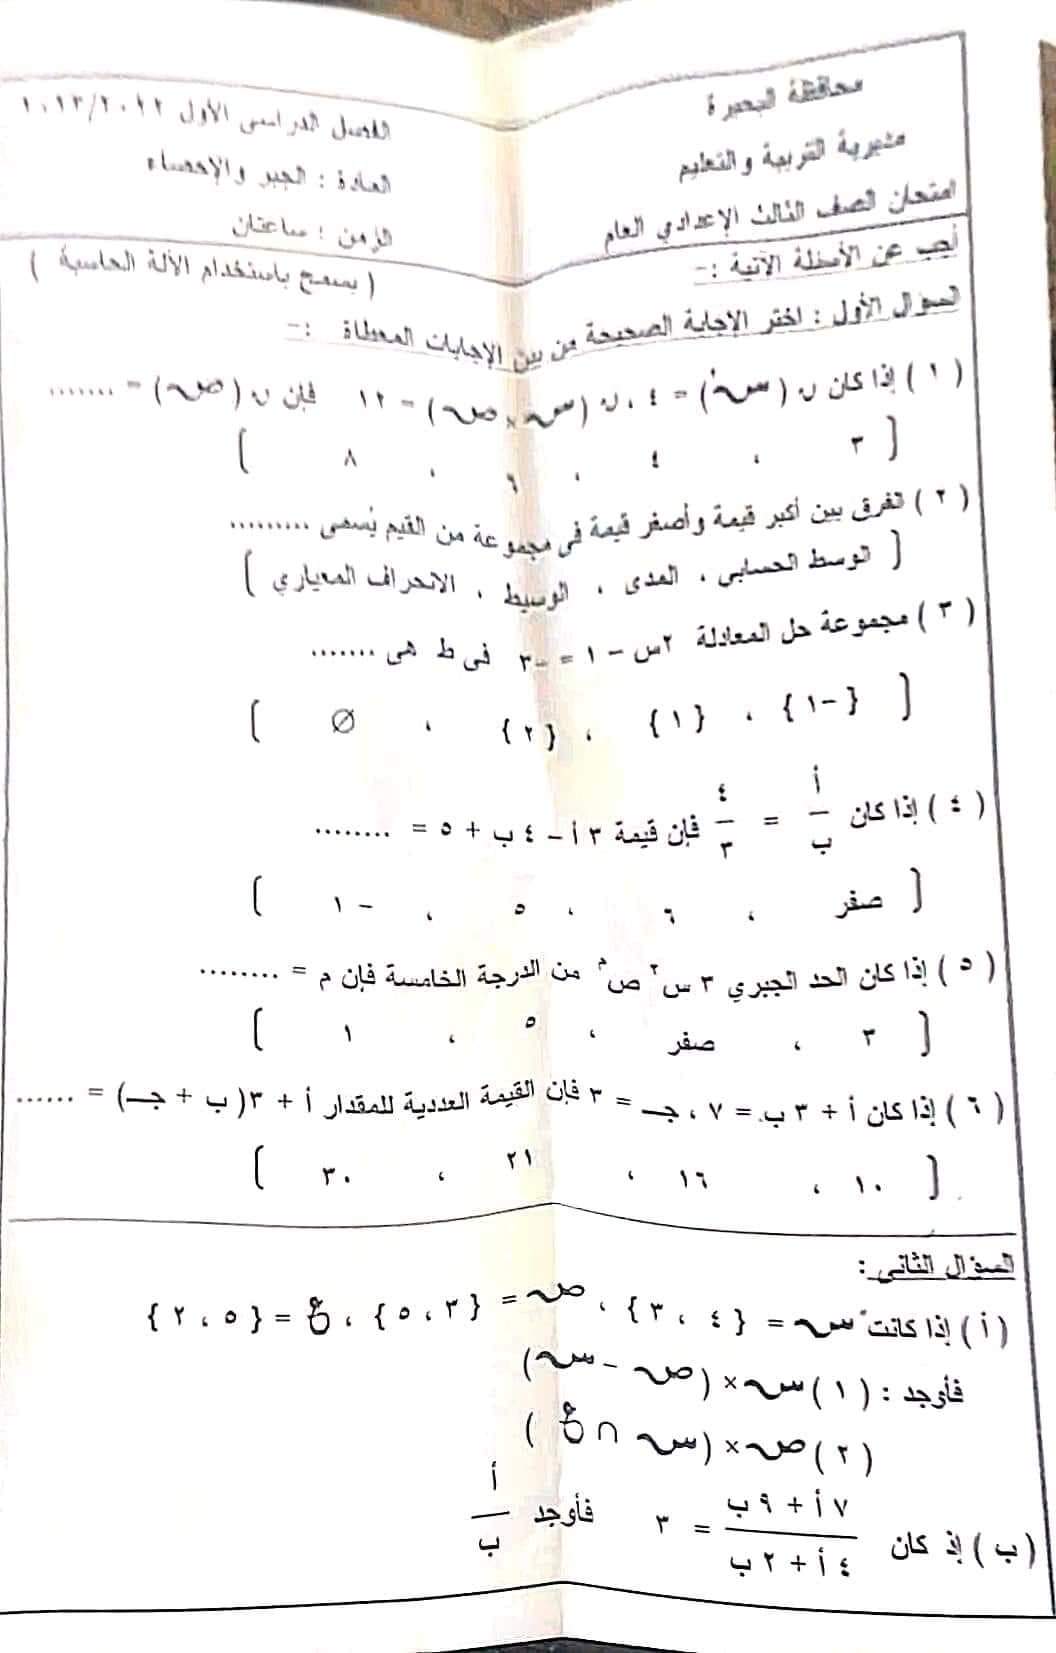 محافظة البحيرة
مديرية التربية والتعليم
امتحان الصف الثالث الإعدادي العام
الفصل الدراسى الأول ٢٠٢٣/٢٠٢٢
المادة : الجبر والإحصاء
الزمن : ساعتان
أجب عن الأسئلة الآتية :-
( يسمح باستخدام الألة الحاسبة )
السؤال الأول : اختر الإجابة الصحيحة من بين الإجابات المعطاة :-
( ١ ) إذا كان ن (سـ) = ٤ ، ن (سـ × صـ) = ١٢ فإن ن (صـ) = .......
[ ٣ ، ٤ ، ٦ ، ٨ ]
( ٢ ) الفرق بين أكبر قيمة وأصغر قيمة فى مجموعة من القيم يُسمى .........
[ الوسط الحسابى ، المدى ، الوسيط ، الانحراف المعياري ]
( ٣ ) مجموعة حل المعادلة ٢س - ١ = -٣ فى ط هى .......
[ {-١} ، {١} ، {٢} ، ∅ ]
( ٤ ) إذا كان أ/ب = ٤/٣ فإن قيمة ٣ أ - ٤ ب + ٥ = ........
[ صفر ، ٦ ، ٥ ، - ١ ]
( ٥ ) إذا كان الحد الجبري ٣ س² صᵐ من الدرجة الخامسة فإن م = ........
[ ٣ ، صفر ، ٥ ، ١ ]
( ٦ ) إذا كان أ + ٣ ب = ٧ ، جـ = ٣ فإن القيمة العددية للمقدار أ + ٣( ب + جـ) = ......
[ ١٠ ، ١٦ ، ٢١ ، ٣٠ ]
السؤال الثانى :
( أ ) إذا كانت سـ = {٤ ، ٣} ، صـ = {٣ ، ٥} ، ع = {٥ ، ٢}
فأوجد : ( ١ ) سـ × (صـ - سـ)
( ٢ ) صـ × (سـ ∩ ع )
( ب ) إذ كان (٧ أ + ٩ ب)/(٤ أ + ٢ ب) = ٣ فأوجد أ/ب